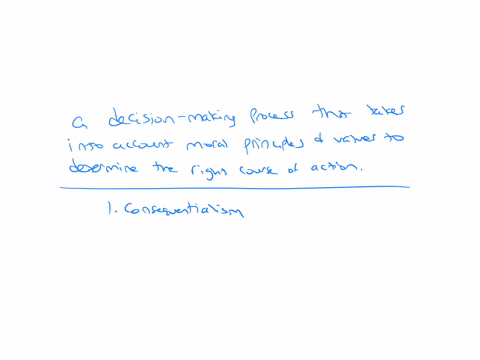 a decision-making process that takes
into account moral principles & values to
determine the right course of action.
1. Consequentialism